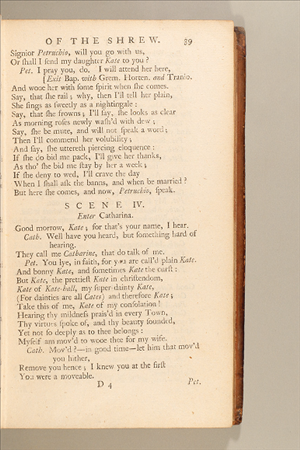 OF THE SHREW. 39
Signior Petruchio, will you go with us,
Or ſhall I ſend my daughter Kate to you?
Pet. I pray you, do. I will attend her here,
[Exit Bap. with Grem. Horten. and Tranio.
And wooe her with ſome ſpirit when ſhe comes.
Say, that ſhe rail; why, then I'll tell her plain,
She ſings as ſweetly as a nightingale:
Say, that ſhe frowns; I'll ſay, ſhe looks as clear
As morning roſes newly waſh'd with dew;
Say, ſhe be mute, and will not ſpeak a word;
Then I'll commend her volubility;
And ſay, ſhe uttereth piercing eloquence:
If ſhe do bid me pack, I'll give her thanks,
As tho' ſhe bid me ſtay by her a week;
If ſhe deny to wed, I'll crave the day
When I ſhall aſk the banns, and when be married?
But here ſhe comes, and now, Petruchio, ſpeak.
SCENE IV.
Enter Catharina.
Good morrow, Kate; for that's your name, I hear.
Cath. Well have you heard, but ſomething hard of
hearing.
They call me Catharine, that do talk of me.
Pet. You lye, in faith, for you are call'd plain Kate.
And bonny Kate, and ſometimes Kate the curſt:
But Kate, the prettieſt Kate in chriſtendom,
Kate of Kate-hall, my ſuper dainty Kate,
(For dainties are all Cates) and therefore Kate;
Take this of me, Kate of my conſolation!
Hearing thy mildneſs prais'd in every Town,
Thy virtues ſpoke of, and thy beauty ſounded,
Yet not ſo deeply as to thee belongs:
Myſelf am mov'd to wooe thee for my wife.
Cath. Mov'd?—in good time—let him that mov'd
you hither,
Remove you hence; I knew you at the firſt
You were a moveable.
D 4 Pet.